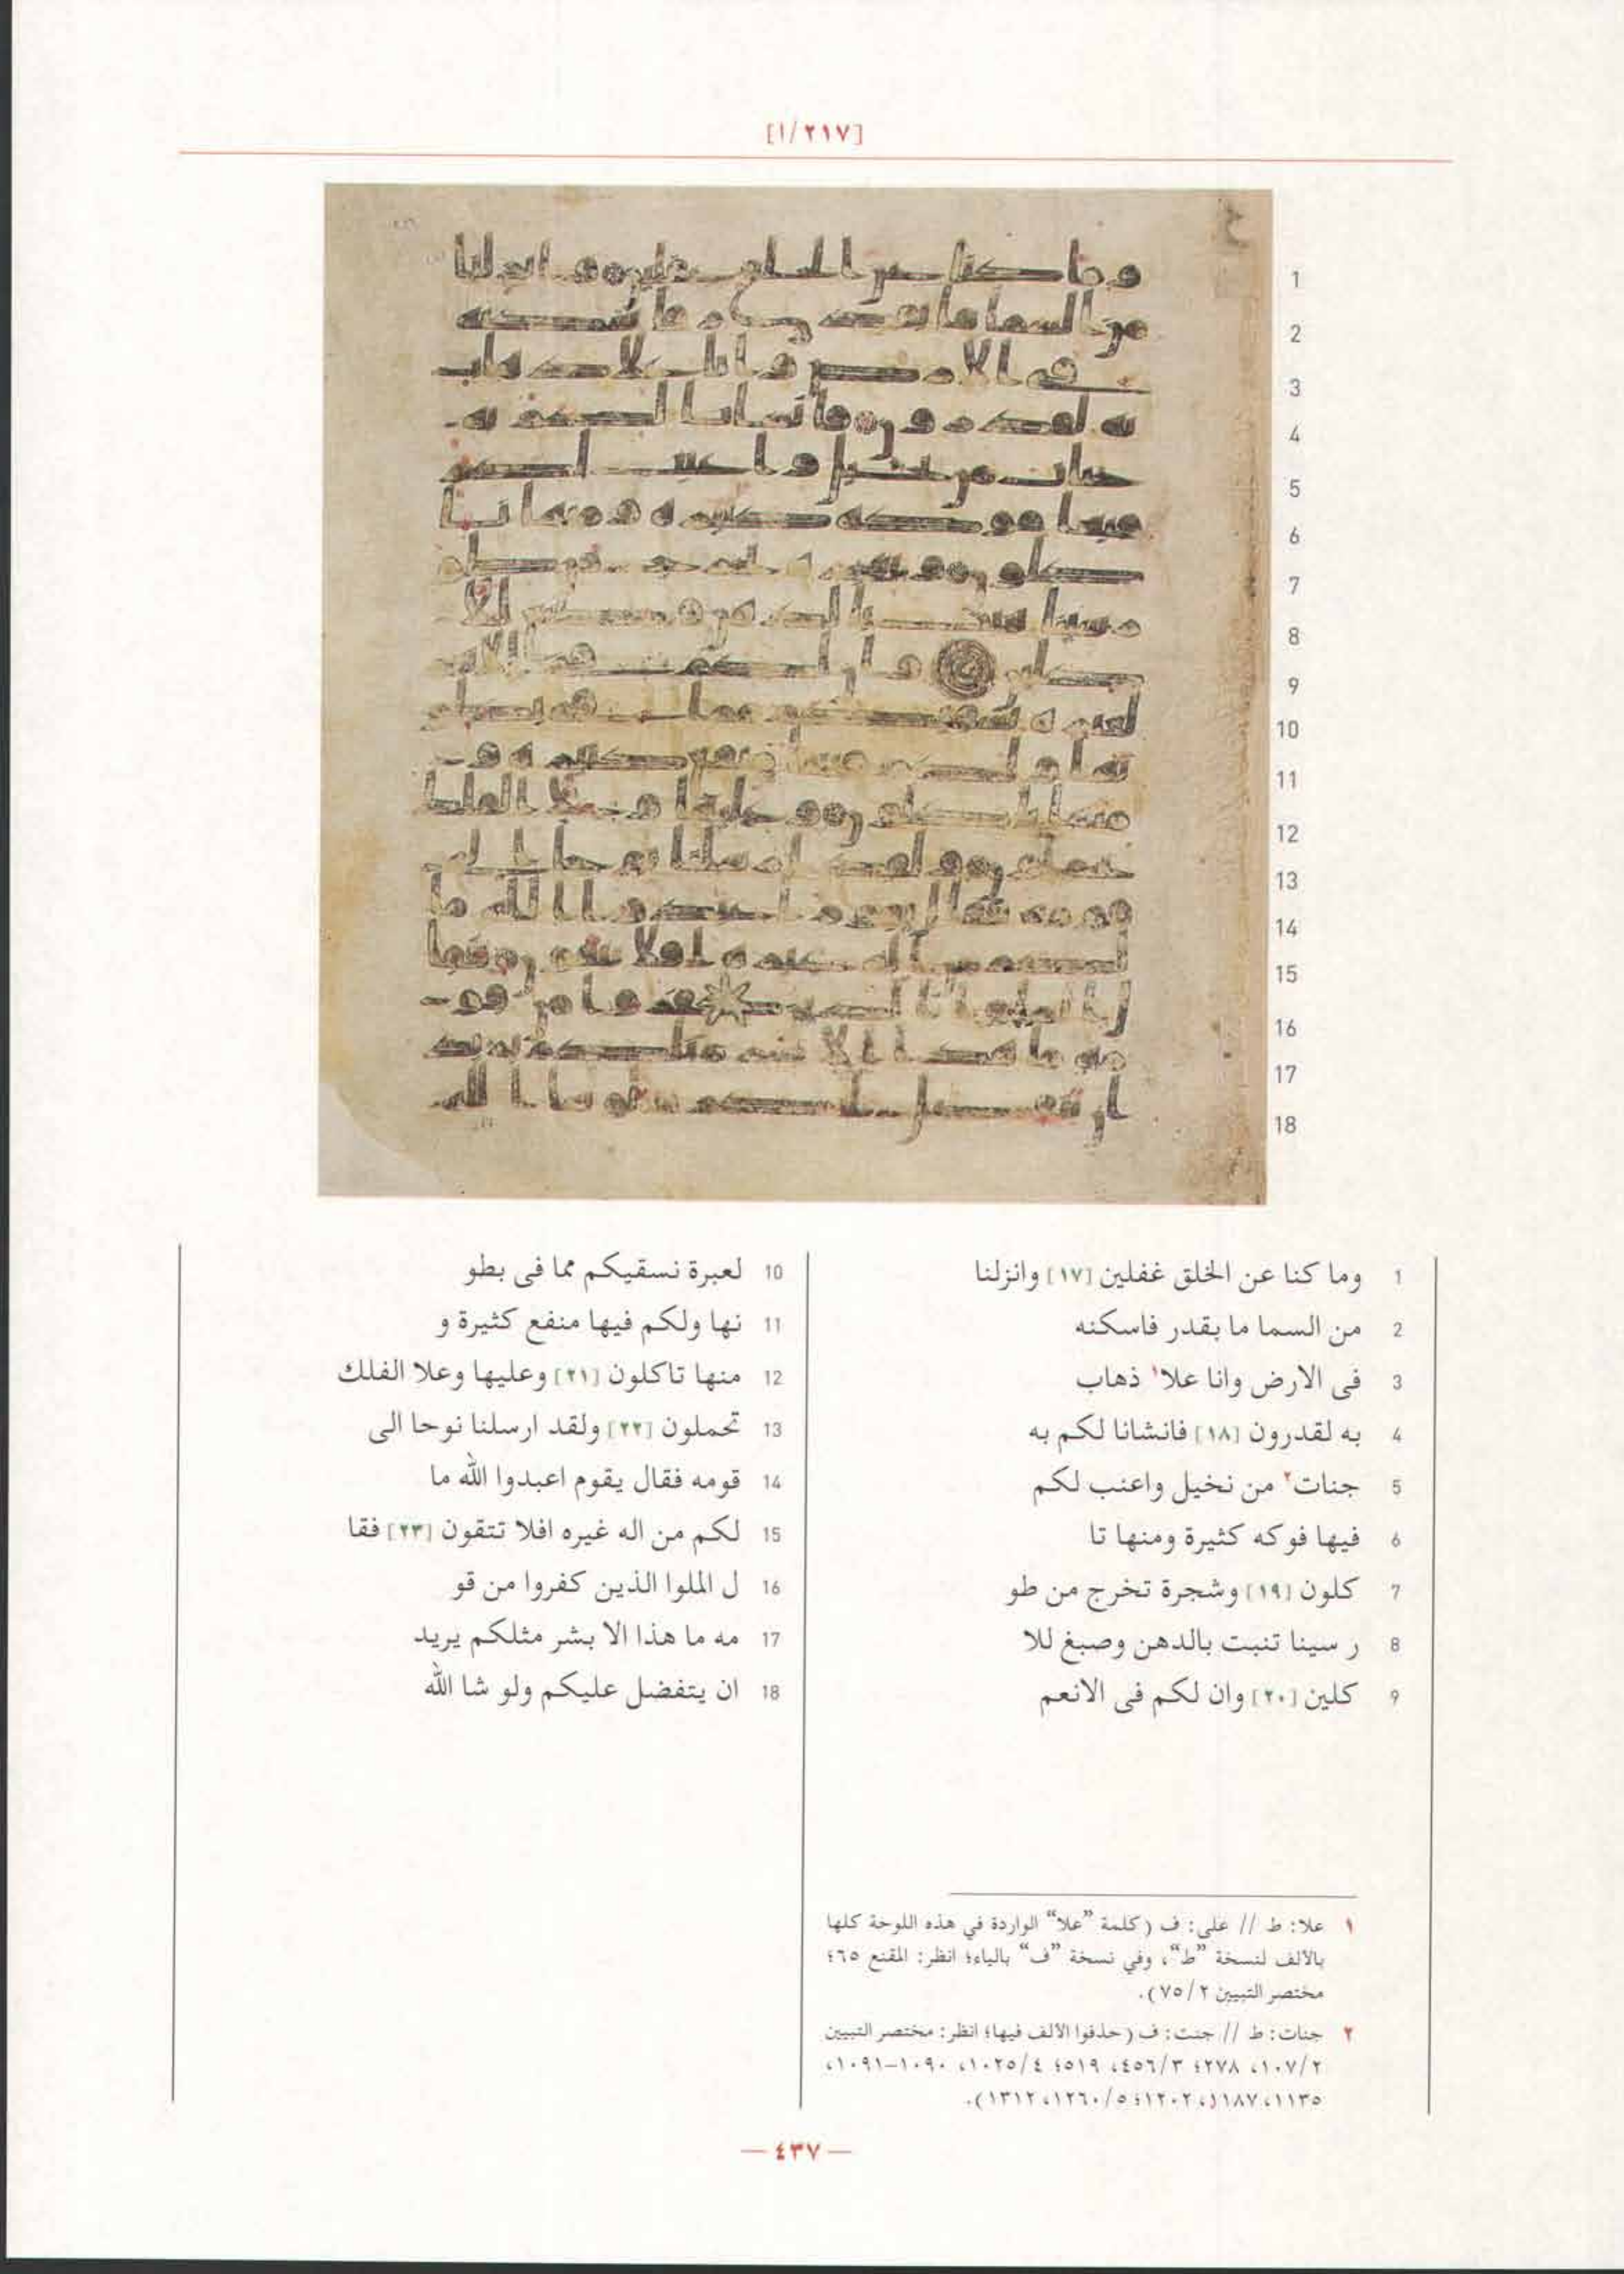 [١/٢١٧]
1 وما كنا عن الخلق غفلين [١٧] وانزلنا
2 من السما ما بقدر فاسكنه
3 فى الارض وانا علا¹ ذهاب
4 به لقدرون [١٨] فانشانا لكم به
5 جنات² من نخيل واعنب لكم
6 فيها فوكه كثيرة ومنها تا
7 كلون [١٩] وشجرة تخرج من طو
8 ر سينا تنبت بالدهن وصبغ للا
9 كلين [٢٠] وان لكم فى الانعم
10 لعبرة نسقيكم مما فى بطو
11 نها ولكم فيها منفع كثيرة و
12 منها تاكلون [٢١] وعليها وعلا الفلك
13 تحملون [٢٢] ولقد ارسلنا نوحا الى
14 قومه فقال يقوم اعبدوا الله ما
15 لكم من اله غيره افلا تتقون [٢٣] فقا
16 ل الملوا الذين كفروا من قو
17 مه ما هذا الا بشر مثلكم يريد
18 ان يتفضل عليكم ولو شا الله
١ علا: ط // على: ف (كلمة "علا" الواردة في هذه اللوحة كلها
بالألف لنسخة "ط"، وفي نسخة "ف" بالياء؛ انظر: المقنع ٦٥؛
مختصر التبيين ٧٥/٢).
٢ جنات: ط // جنت: ف (حذفوا الألف فيها؛ انظر: مختصر التبيين
١٠٧/٢، ٢٧٨؛ ٤٥٦/٣، ٥١٩؛ ١٠٢٥/٤، ١٠٩٠-١٠٩١،
١١٣٥، ١١٨٧، ١٢٠٢؛ ١٢٦٠/٥، ١٣١٢).
— ٤٣٧ —